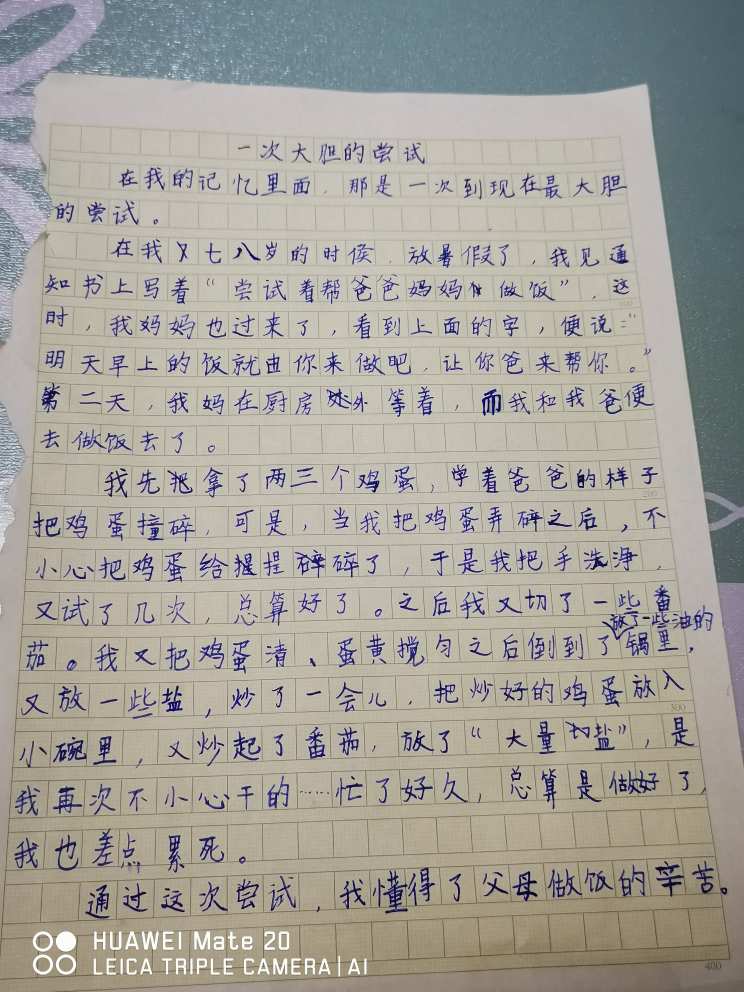 一次大胆的尝试
在我的记忆里面，那是一次到现在最大胆
的尝试。
在我七八岁的时候，放暑假了，我见通
知书上写着“尝试着帮爸爸妈妈做饭”，这
时，我妈妈也过来了，看到上面的字，便说：“
明天早上的饭就由你来做吧，让你爸来帮你。”
第二天，我妈在厨房外等着，而我和我爸便
去做饭去了。
我先拿了两三个鸡蛋，学着爸爸的样子
把鸡蛋撞碎，可是，当我把鸡蛋弄碎之后，不
小心把鸡蛋给捏碎了，于是我把手洗净，
又试了几次，总算好了。之后我又切了一些番
放了一些油的
茄。我又把鸡蛋清、蛋黄搅匀之后倒到了锅里，
又放一些盐，炒了一会儿，把炒好的鸡蛋放入
小碗里，又炒起了番茄，放了“大量盐”，是
我再次不小心干的……忙了好久，总算是做好了，
我也差点累死。
通过这次尝试，我懂得了父母做饭的辛苦。
100
200
300
400
HUAWEI Mate 20
LEICA TRIPLE CAMERA | AI